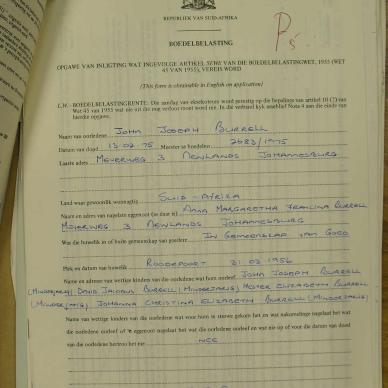 REPUBLIEK VAN SUID-AFRIKA
P5
BOEDELBELASTING
OPGAWE VAN INLIGTING WAT INGEVOLGE ARTIKEL SEWE VAN DIE BOEDELBELASTINGWET, 1955 (WET
45 VAN 1955), VEREIS WORD
(This form is obtainable in English on application)
L.W.—BOEDELBELASTINGRENTE: Die aandag van eksekuteurs word gevestig op die bepalings van artikel 10 (2) van
Wet 45 van 1955 wat nie uit die oog verloor moet word nie. In dié verband kyk asseblief Nota 4 aan die einde van
hierdie opgawe.
Naam van oorledene JOHN JOSEPH BURRELL
Datum van dood 13-02-75 Meester se boedelno. 2683/1975
Laaste adres MEYERWEG 3 NEWLANDS JOHANNESBURG
Land waar gewoonlik woonagtig SUID-AFRIKA
Naam en adres van nagelate eggenoot (as daar is) ANNA MARGARETHA BURRELL
MEYERWEG 3 NEWLANDS JOHANNESBURG
Was die huwelik in of buite gemeenskap van goedere IN GEMEENSKAP VAN GOED
Plek en datum van huwelik ROODEPOORT 31-03-1956
Naam en adresse van wettige kinders van die oorledene wat hom oorleef JOHN JOSEPH BURRELL
(MINDERJARIG) DAVID JACOBUS BURRELL (MINDERJARIG) HESTER ELIZABETH BURRELL
(MINDERJARIG) JOHANNA CHRISTINA ELIZABETH BURRELL (MINDERJARIG)
Name van wettige kinders van die oorledene wat voor hom te sterwe gekom het en wat nakomelinge nagelaat het wat
die oorledene oorleef of 'n eggenoot nagelaat het wat die oorledene oorleef en wat nie op of voor die datum van dood
van die oorledene hertrou het nie NEE